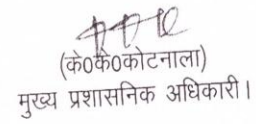 (के0के0कोटनाला)
मुख्य प्रशासनिक अधिकारी।